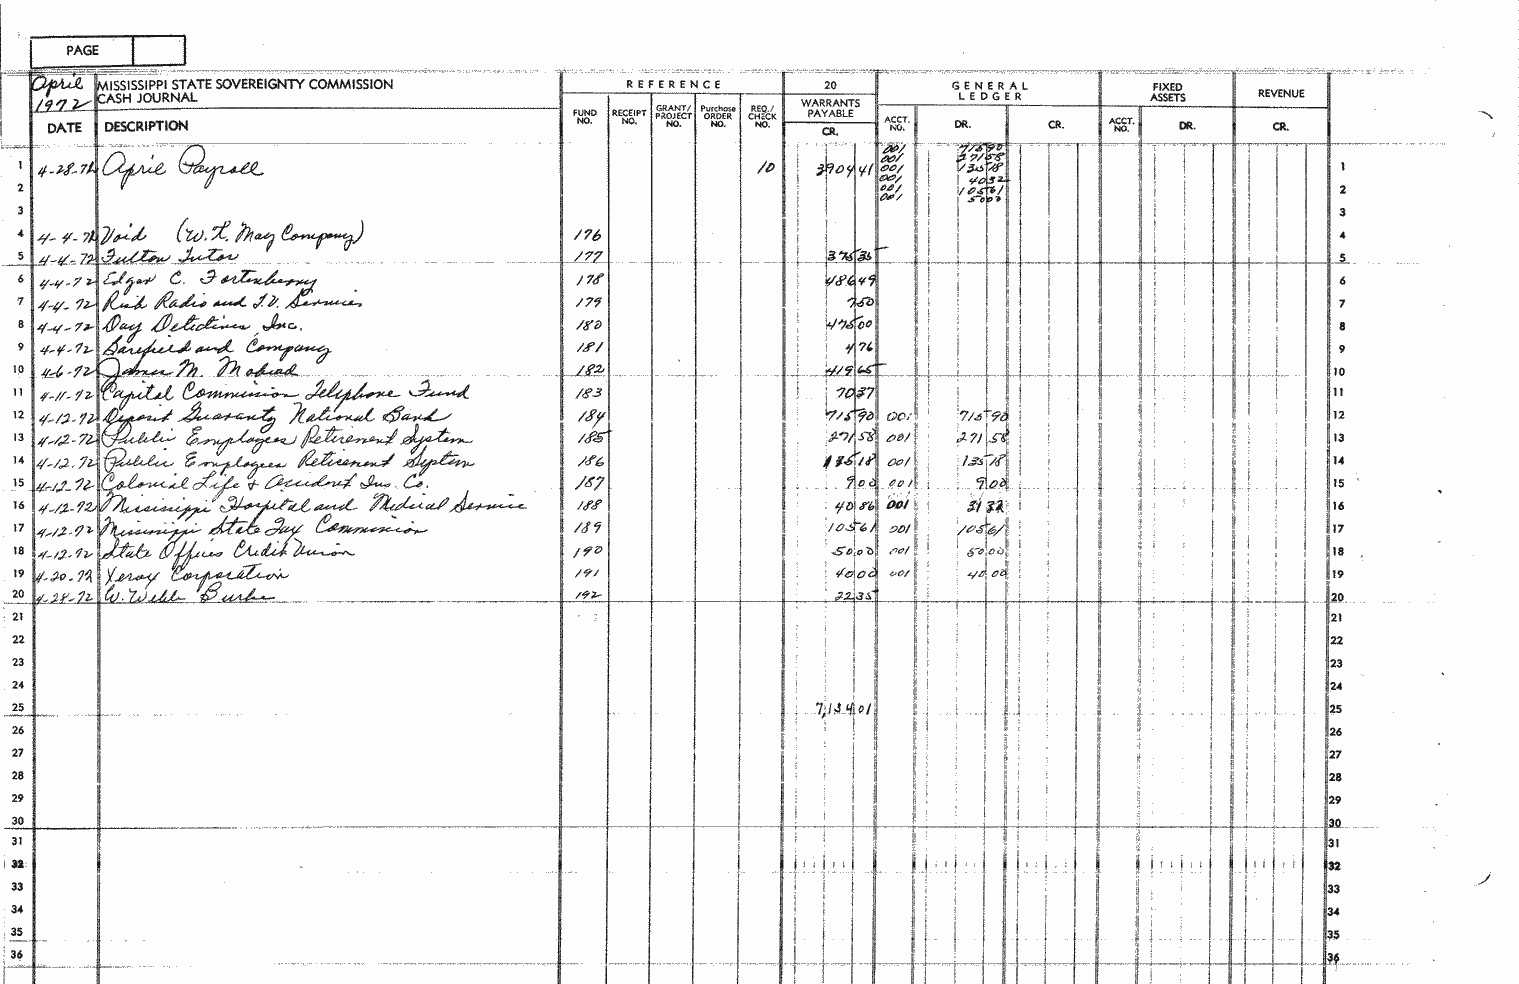 PAGE
April MISSISSIPPI STATE SOVEREIGNTY COMMISSION REFERENCE 20 GENERAL LEDGER FIXED ASSETS REVENUE
1972 CASH JOURNAL
DATE DESCRIPTION FUND NO. RECEIPT NO. GRANT/ PROJECT NO. Purchase ORDER NO. REQ./ CHECK NO. WARRANTS PAYABLE CR. ACCT. NO. DR. CR. ACCT. NO. DR. CR.
001 715 90
001 271 58
1 4-28-72 April Payroll 10 3904 41 001 135 18 1
001 40 32
2 001 105 61 2
001 50 00
3 3
4 4-4-72 Void (W. T. May Company) 176 4
5 4-4-72 Fulton Tutor 177 375 35 5
6 4-4-72 Edgar C. Fortenberry 178 486 49 6
7 4-4-72 Rush Radio and T.V. Services 179 7 50 7
8 4-4-72 Day Detectives, Inc. 180 475 00 8
9 4-4-72 Barefield and Company 181 4 76 9
10 4-6-72 James M. Mohead 182 419 65 10
11 4-11-72 Capital Commission Telephone Fund 183 70 37 11
12 4-12-72 Deposit Guaranty National Bank 184 715 90 001 715 90 12
13 4-12-72 Public Employees Retirement System 185 271 58 001 271 58 13
14 4-12-72 Public Employees Retirement System 186 135 18 001 135 18 14
15 4-12-72 Colonial Life & Accident Ins. Co. 187 9 00 001 9 00 15
16 4-12-72 Mississippi Hospital and Medical Service 188 40 86 001 31 32 16
17 4-12-72 Mississippi State Tax Commission 189 105 61 001 105 61 17
18 4-12-72 State Offices Credit Union 190 50 00 001 50 00 18
19 4-20-72 Xerox Corporation 191 40 00 001 40 00 19
20 4-28-72 W. Webb Burke 192 22 35 20
21 21
22 22
23 23
24 24
25 7,134 01 25
26 26
27 27
28 28
29 29
30 30
31 31
32 32
33 33
34 34
35 35
36 36